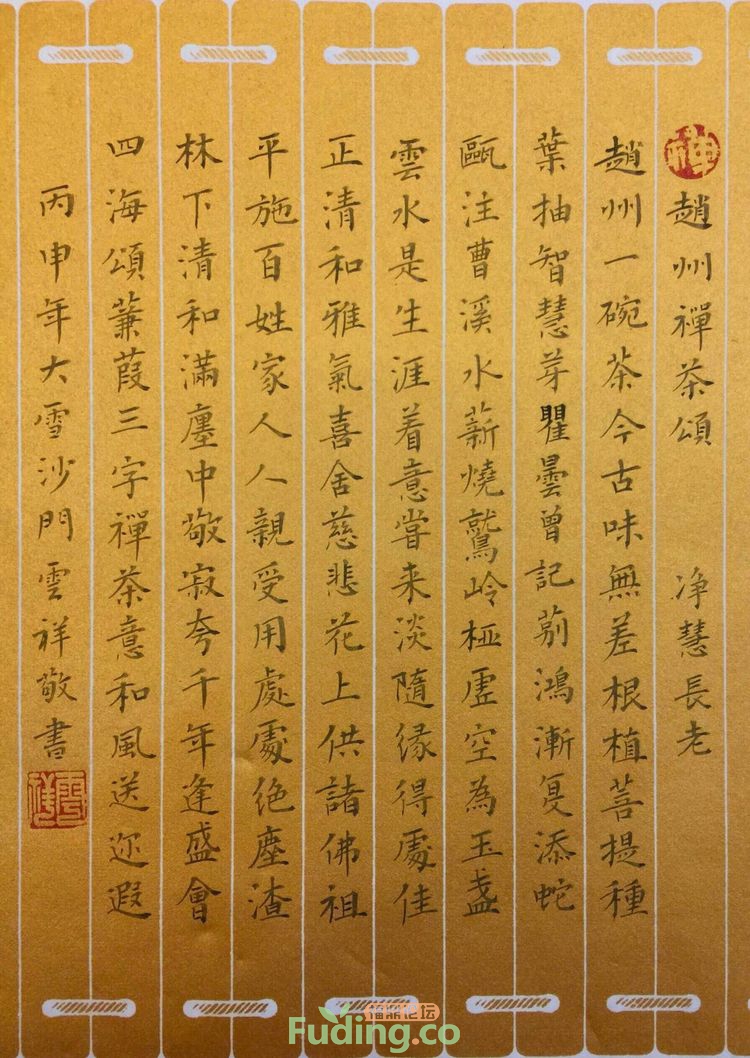 趙州禪茶頌 净慧長老
趙州一碗茶今古味無差根植菩提種
葉抽智慧芽瞿曇曾記莂鴻漸复添蛇
甌注曹溪水薪燒鷲岭椏虛空為玉盏
雲水是生涯着意嘗来淡隨緣得處佳
正清和雅氣喜舍慈悲花上供諸佛祖
平施百姓家人人親受用處處绝塵渣
林下清和滿廛中敬寂夸千年逢盛會
四海頌蒹葭三字禪茶意和風送迩遐
丙申年大雪沙門雲祥敬書
雲祥
福鼎论坛
Fuding.co